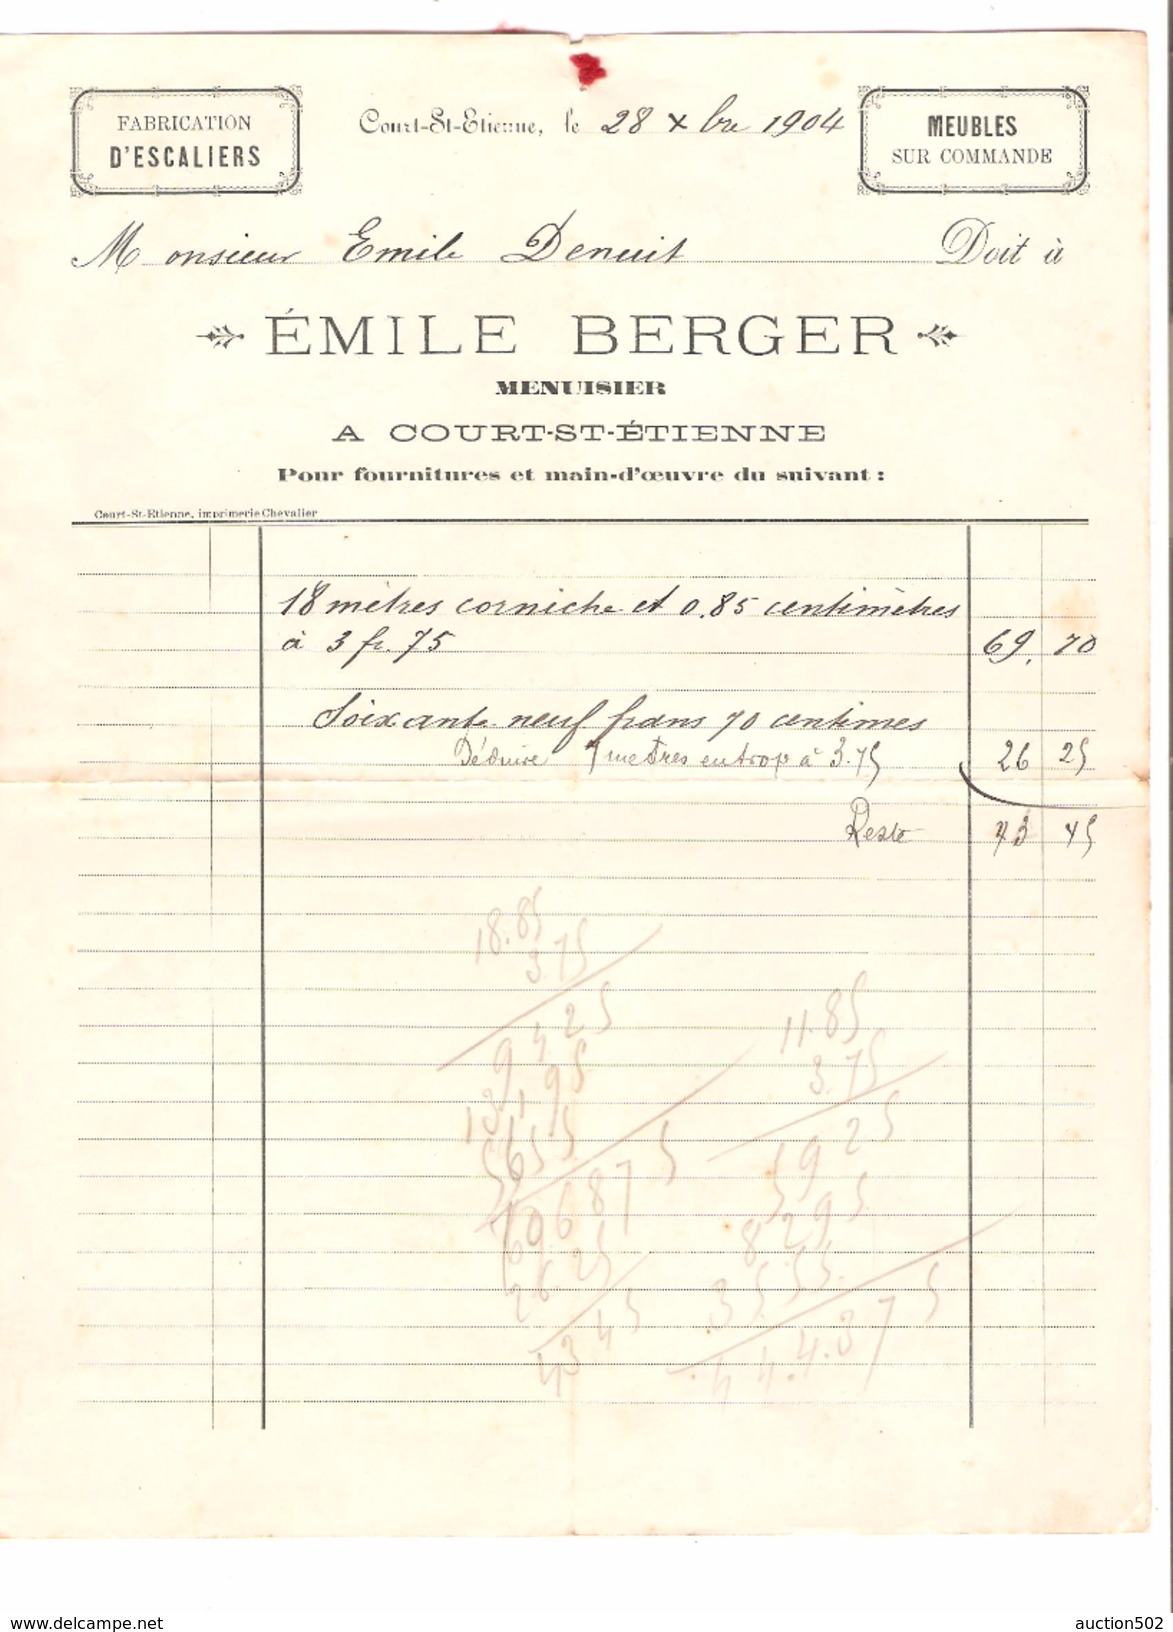 FABRICATION
D'ESCALIERS
Court-St-Etienne, le 28 Xbre 1904
MEUBLES
SUR COMMANDE
Monsieur Emile Denuit Doit à
ÉMILE BERGER
MENUISIER
A COURT-ST-ÉTIENNE
Pour fournitures et main-d'œuvre du suivant :
Court-St-Etienne, imprimerie Chevalier
18 mètres corniche et 0.85 centimètres
à 3 fr. 75 69. 70
Soixante neuf frans 70 centimes
Déduire 7 metres en trop à 3.75 26 25
Reste 43 45
18.85
3.75
9425
13195
5655
706875
69
26 25
43 45
11.85
3.75
5925
8295
3555
444375
www.delcampe.net
auction502